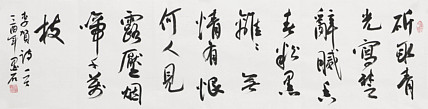 斫取青
光寫楚
辭膩香
春粉黑
離〻無
情有恨
何人見
露壓烟
啼千萬
枝
李賀詩一首